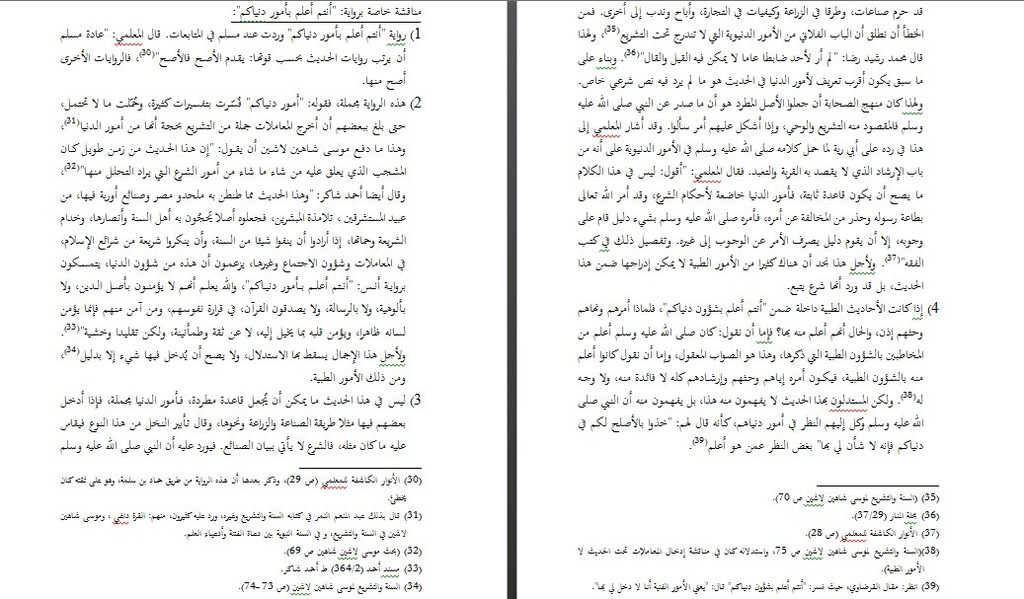 مناقشة خاصة برواية: "أنتم أعلم بأمور دنياكم":
1) رواية "أنتم أعلم بأمور دنياكم" وردت عند مسلم في المتابعات. قال المعلمي: "عادة مسلم
أن يرتب روايات الحديث بحسب قوتها: يقدم الأصح فالأصح"(30)، فالروايات الأخرى
أصح منها.
2) هذه الرواية مجملة، فقوله: "أمور دنياكم" فُسّرت بتفسيرات كثيرة، وحُمّلت ما لا تحتمل،
حتى بلغ ببعضهم أن أخرج المعاملات جملة من التشريع بحجة أنها من أمور الدنيا(31)،
وهذا ما دفع موسى شاهين لاشين أن يقول: "إن هذا الحديث من زمن طويل كان
المشجب الذي يعلق عليه من شاء ما شاء من أمور الشرع التي يراد التحلل منها"(32)،
وقال أيضا أحمد شاكر: "وهذا الحديث مما طنطن به ملحدو مصر وصنائع أوربة فيها، من
عبيد المستشرقين ، تلامذة المبشرين، فجعلوه أصلا يحُجّون به أهل السنة وأنصارها، وخدام
الشريعة وحماتها، إذا أرادوا أن ينفوا شيئا من السنة، وأن ينكروا شريعة من شرائع الإسلام،
في المعاملات وشؤون الاجتماع وغيرها، يزعمون أن هذه من شؤون الدنيا، يتمسكون
برواية أنس: "أنتم أعلم بأمور دنياكم"، والله يعلم أنهم لا يؤمنون بأصل الدين، ولا
بألوهية، ولا بالرسالة، ولا يصدقون القرآن، في قرارة نفوسهم، ومن آمن منهم فإنما يؤمن
لسانه ظاهرا، ويؤمن قلبه بما يخيل إليه، لا عن ثقة وطمأنينة، ولكن تقليدا وخشية"(33).
ولأجل هذا الإجمال يسقط بها الاستدلال، ولا يصح أن يُدخل فيها شيء إلا بدليل(34)،
ومن ذلك الأمور الطبية.
3) ليس في هذا الحديث ما يمكن أن يُجعل قاعدة مطردة، فأمور الدنيا مجملة، فإذا أدخل
بعضهم فيها مثلا طريقة الصناعة والزراعة ونحوها، وقال تأبير النخل من هذا النوع فيقاس
عليه ما كان مثله، فالشرع لا يأتي ببيان الصنائع. فيورد عليه أن النبي صلى الله عليه وسلم
(30) الأنوار الكاشفة للمعلمي (ص 29)، وذكر بعدها أن هذه الرواية من طريق حماد بن سلمة، وهو على ثقته كان
يخطئ.
(31) قال بذلك عبد المنعم النمر في كتابه السنة والتشريع وغيره، ورد عليه كثيرون، منهم: القرة داغي ، وموسى شاهين
لاشين في السنة والتشريع، و في السنة النبوية بين دعاة الفتنة وأدعياء العلم.
(32) (بحث موسى لاشين شاهين ص 69).
(33) مسند أحمد (364/2) ط أحمد شاكر.
(34) السنة والتشريع لموسى شاهين لاشين (ص 73 -74).
قد حرم صناعات، وطرقا في الزراعة وكيفيات في التجارة، وأباح وندب إلى أخرى. فمن
الخطأ أن نطلق أن الباب الفلاني من الأمور الدنيوية التي لا تندرج تحت التشريع(35)، ولهذا
قال محمد رشيد رضا: "لم أر لأحد ضابطا عاما لا يمكن فيه القيل والقال"(36). وبناء على
ما سبق يكون أقرب تعريف لأمور الدنيا في الحديث هو ما لم يرد فيه نص شرعي خاص.
ولهذا كان منهج الصحابة أن جعلوا الأصل المطرد هو أن ما صدر عن النبي صلى الله عليه
وسلم فالمقصود منه التشريع والوحي، وإذا أشكل عليهم أمر سألوا. وقد أشار المعلمي إلى
هذا في رده على أبي رية لما حمل كلامه صلى الله عليه وسلم في الأمور الدنيوية على أنه من
باب الإرشاد الذي لا يقصد به القربة والتعبد. فقال المعلمي: "أقول: ليس في هذا الكلام
ما يصح أن يكون قاعدة ثابتة، فأمور الدنيا خاضعة لأحكام الشرع، وقد أمر الله تعالى
بطاعة رسوله وحذر من المخالفة عن أمره، فأمره صلى الله عليه وسلم بشيء دليل قام على
وجوبه، إلا أن يقوم دليل يصرف الأمر عن الوجوب إلى غيره. وتفصيل ذلك في كتب
الفقه"(37). ولأجل هذا نجد أن هناك كثيرا من الأمور الطبية لا يمكن إدراجها ضمن هذا
الحديث، بل قد ورد أنها شرع يتبع.
4) إذا كانت الأحاديث الطبية داخلة ضمن "أنتم أعلم بشؤون دنياكم"، فلماذا أمرهم ونهاهم
وحثهم إذن، والحال أنهم أعلم منه بها؟ فإما أن نقول: كان صلى الله عليه وسلم أعلم من
المخاطبين بالشؤون الطبية التي ذكرها، وهذا هو الصواب المعقول، وإما أن نقول كانوا أعلم
منه بالشؤون الطبية، فيكون أمره إياهم وحثهم وإرشادهم كله لا فائدة منه، ولا وجه
له(38). ولكن المستدلون بهذا الحديث لا يفهمون منه هذا، بل يفهمون منه أن النبي صلى
الله عليه وسلم وكل إليهم النظر في أمور دنياهم، كأنه قال لهم: "خذوا بالأصلح لكم في
دنياكم فإنه لا شأن لي بها" بغض النظر عمن هو أعلم(39).
(35) (السنة والتشريع لموسى شاهين لاشين ص 70).
(36) مجلة المنار (37/29).
(37) الأنوار الكاشفة للمعلمي (ص 28).
(38)(السنة والتشريع لموسى شاهين لاشين ص 75، واستدلاله كان في مناقشة إدخال المعاملات تحت الحديث لا
الأمور الطبية).
(39) انظر: مقال القرضاوي، حيث فسر: "أنتم أعلم بشؤون دنياكم" قال: "يعني الأمور الفنية أنا لا دخل لي بها".